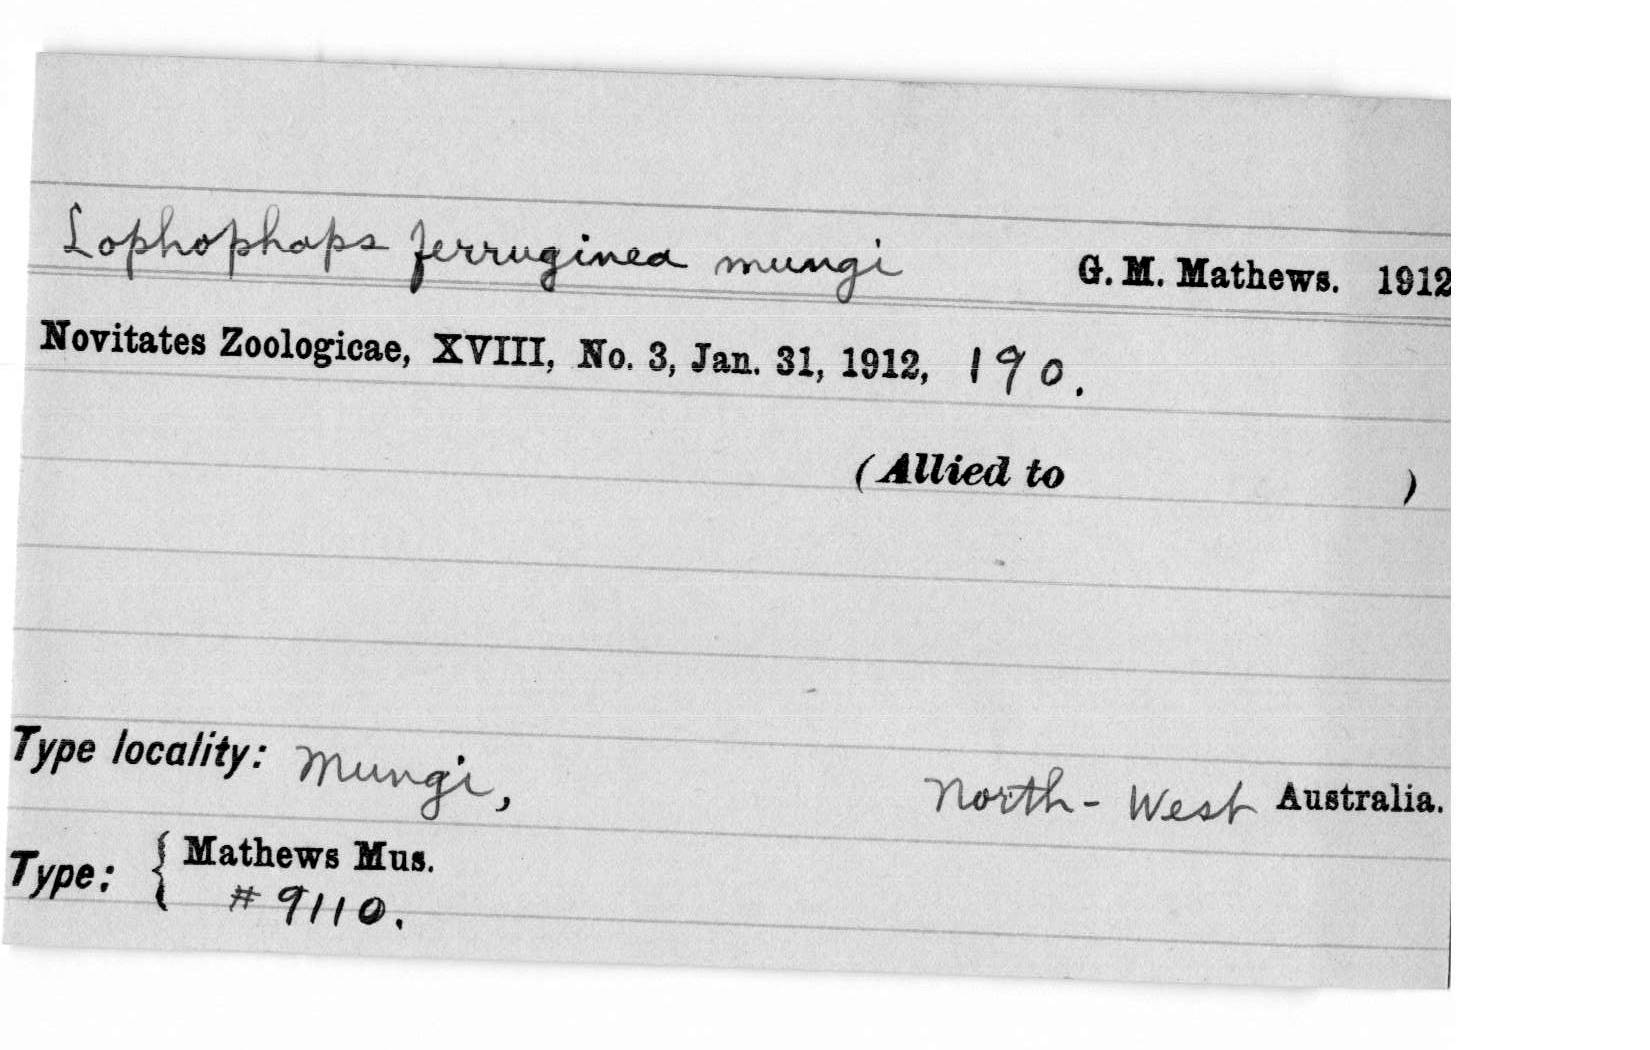 Lophophaps ferruginea mungi G. M. Mathews. 1912
Novitates Zoologicae, XVIII, No. 3, Jan. 31, 1912, 190.
(Allied to )
Type locality: Mungi, North-West Australia.
Type: { Mathews Mus.
# 9110.